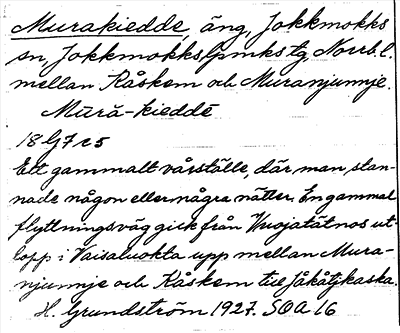 Murakiedde, äng, Jokkmokks
sn, Jokkmokks lpmks tg Norrb. l.
mellan Kåskem och Muranjunnje.
Mūrā-kieddē
18 G 7 c 5
Ett gammalt vårställe, där man stan-
nade någon eller några nätter. En gammal
flyttningsväg gick från Vuojatätnos ut-
lopp i Vaisaluokta upp mellan Mura-
njunnje och Kåskem till Jåkåtjkaska.
H. Grundström 1927. SOA 16